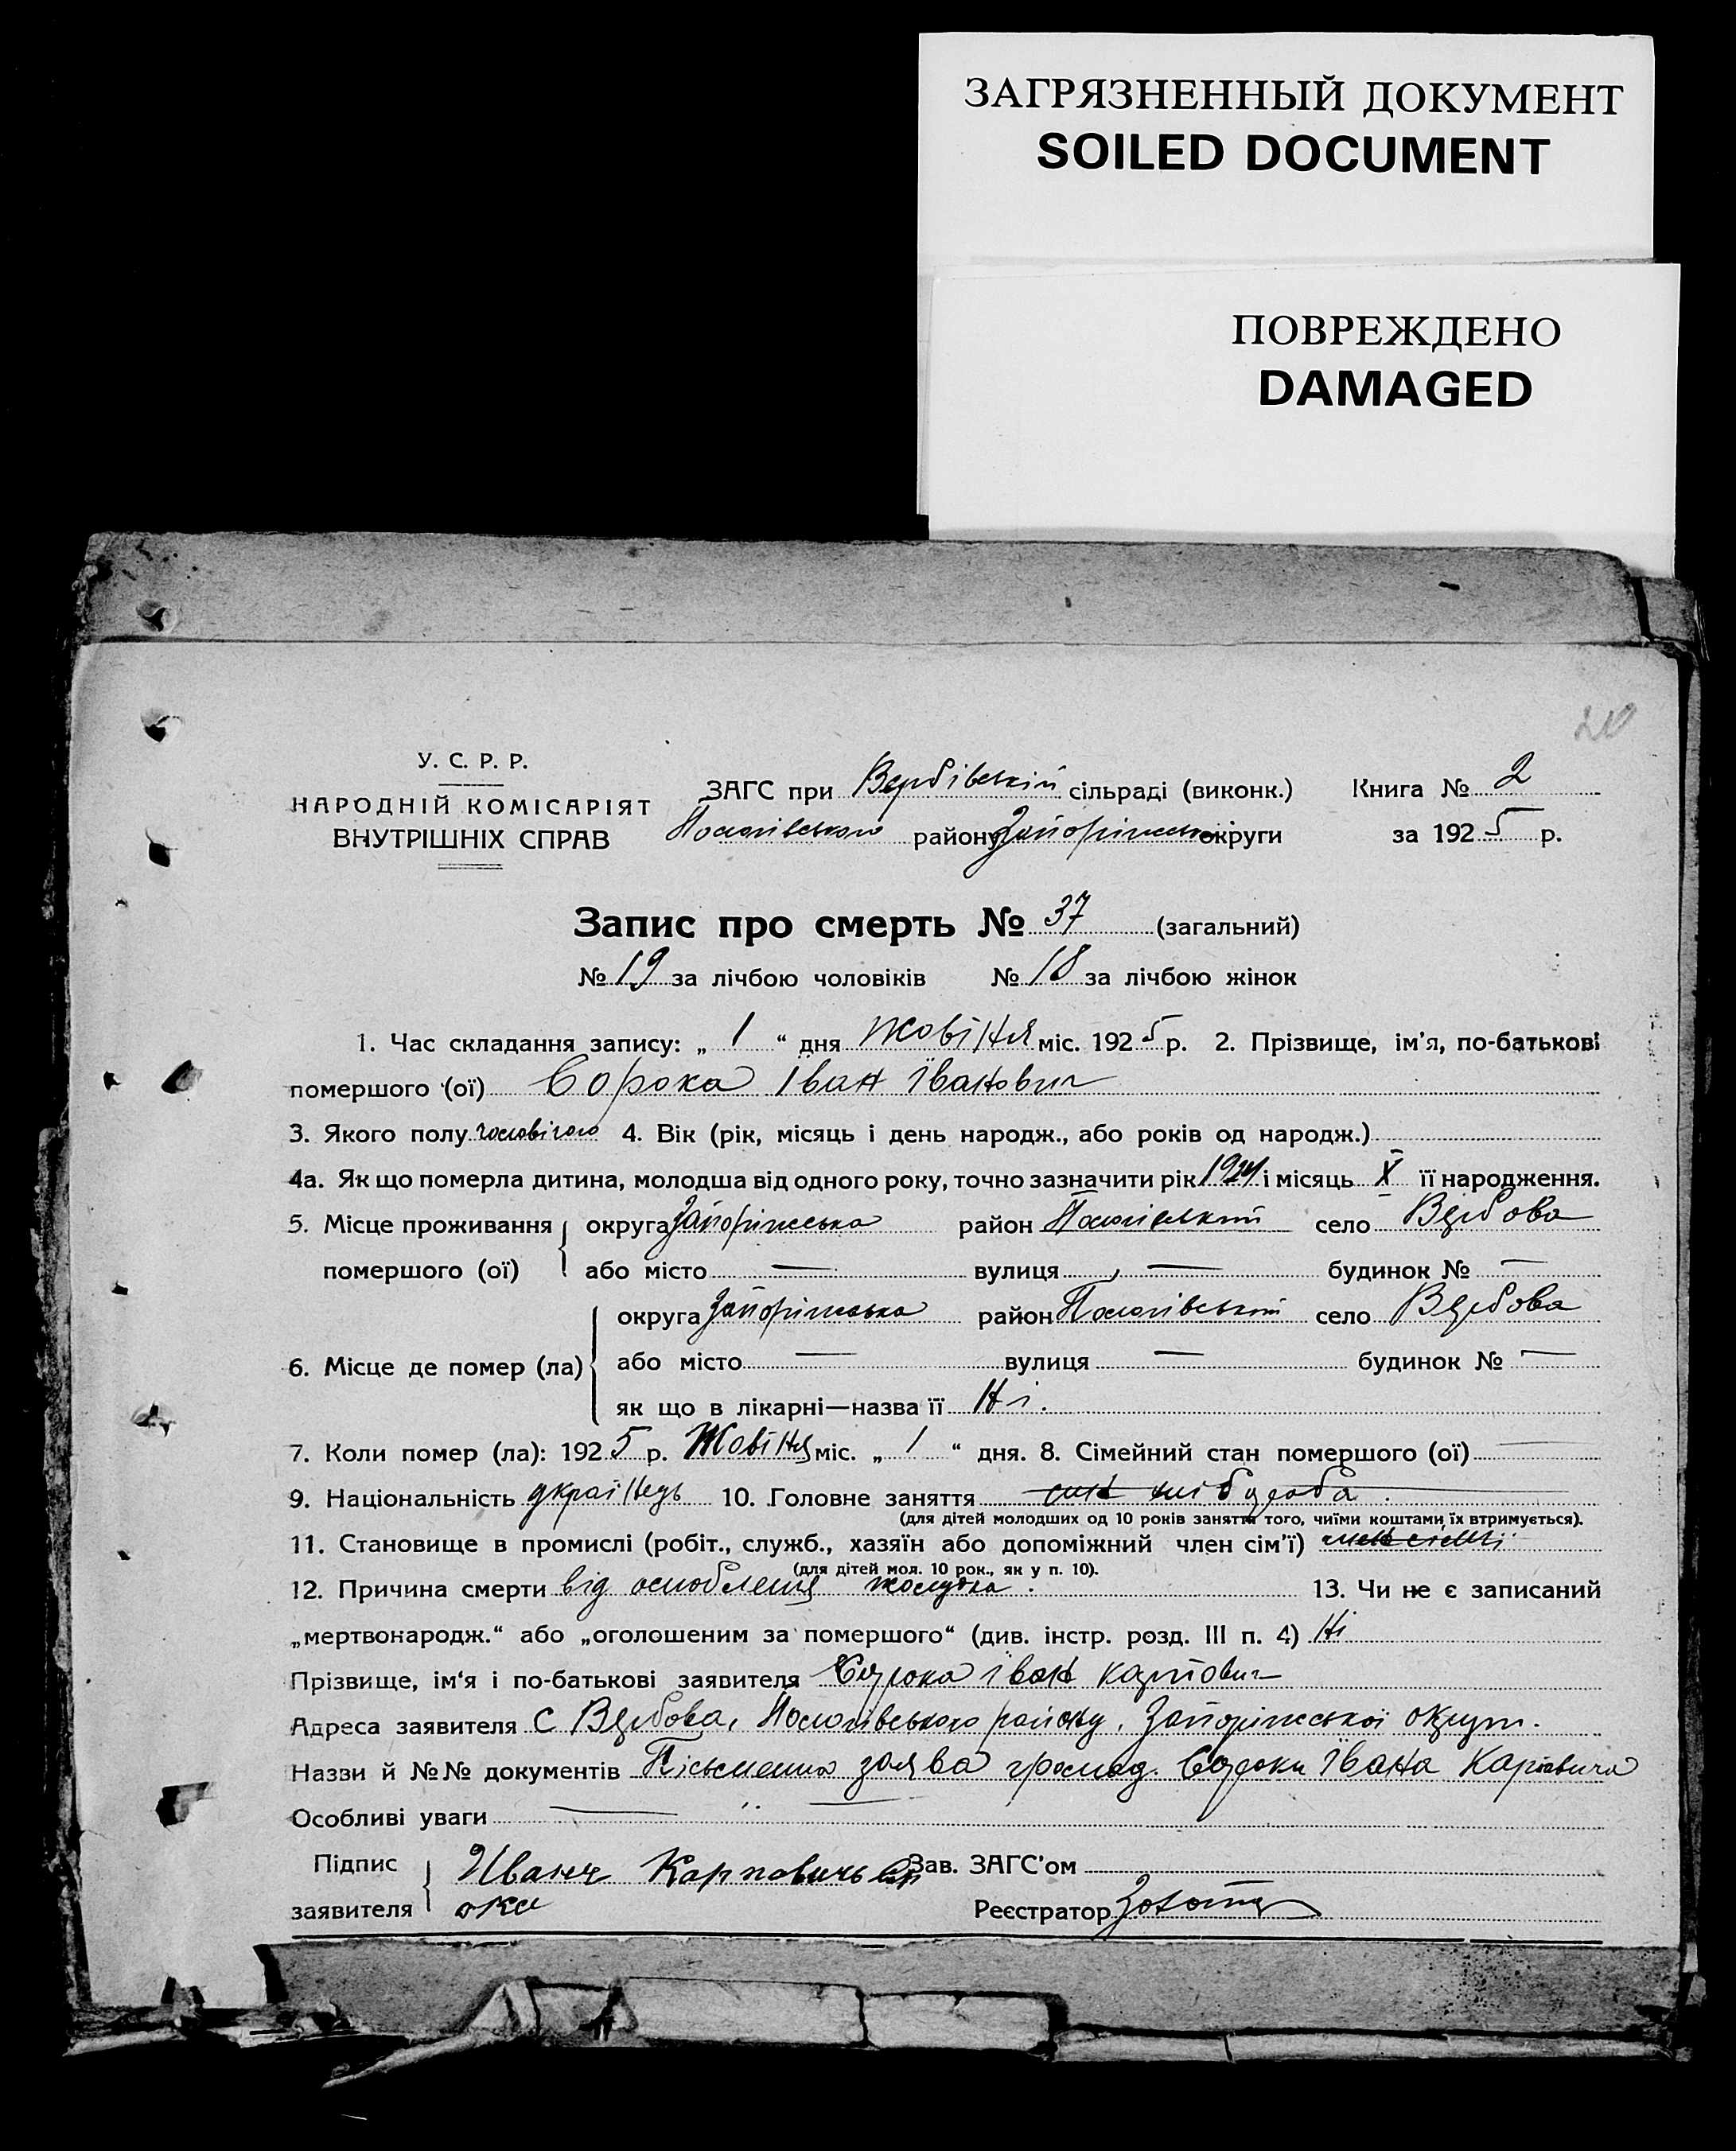 ЗАГРЯЗНЕННЫЙ ДОКУМЕНТ
SOILED DOCUMENT
ПОВРЕЖДЕНО
DAMAGED
20
У. С. Р. Р.
НАРОДНІЙ КОМІСАРІЯТ
ВНУТРІШНІХ СПРАВ
ЗАГС при Вербівській сільраді (виконк.) Книга № 2
Пологівського району Запоріжської округи за 1925 р.
Запис про смерть № 37 (загальний)
№ 19 за лічбою чоловіків № 18 за лічбою жінок
1. Час складання запису: „ 1 “ дня Жовтня міс. 1925 р. 2. Прізвище, ім'я, по-батькові
помершого (ої) Сорока Іван Іванович
3. Якого полу чоловічого 4. Вік (рік, місяць і день народж., або років од народж.)
4а. Як що померла дитина, молодша від одного року, точно зазначити рік 1924 і місяць X її народження.
5. Місце проживання округа Запоріжська район Пологівський село Вербова
помершого (ої) або місто — вулиця — будинок № —
6. Місце де помер (ла) округа Запоріжська район Пологівський село Вербова
або місто — вулиця — будинок № —
як що в лікарні—назва її Ні.
7. Коли помер (ла): 1925 р. Жовтня міс. „ 1 “ дня. 8. Сімейний стан помершого (ої) —
9. Національність українець 10. Головне заняття хлібороба.
(для дітей молодших од 10 років заняття того, чиїми коштами їх втримується).
11. Становище в промислі (робіт., служб., хазяїн або допоміжний член сім'ї)
(для дітей мол. 10 рок., як у п. 10).
12. Причина смерти від желудка. 13. Чи не є записаний
„мертвонародж.“ або „оголошеним за помершого“ (див. інстр. розд. III п. 4) Ні
Прізвище, ім'я і по-батькові заявителя Сорока Іван Карпович
Адреса заявителя с Вербова, Пологівського району, Запоріжської округи.
Назви й №№ документів Пісьменна заява громад. Сороки Івана Карповича
Особливі уваги —
Підпис Иванъ Карповичь Сор Зав. ЗАГС'ом
заявителя ока Реєстратор